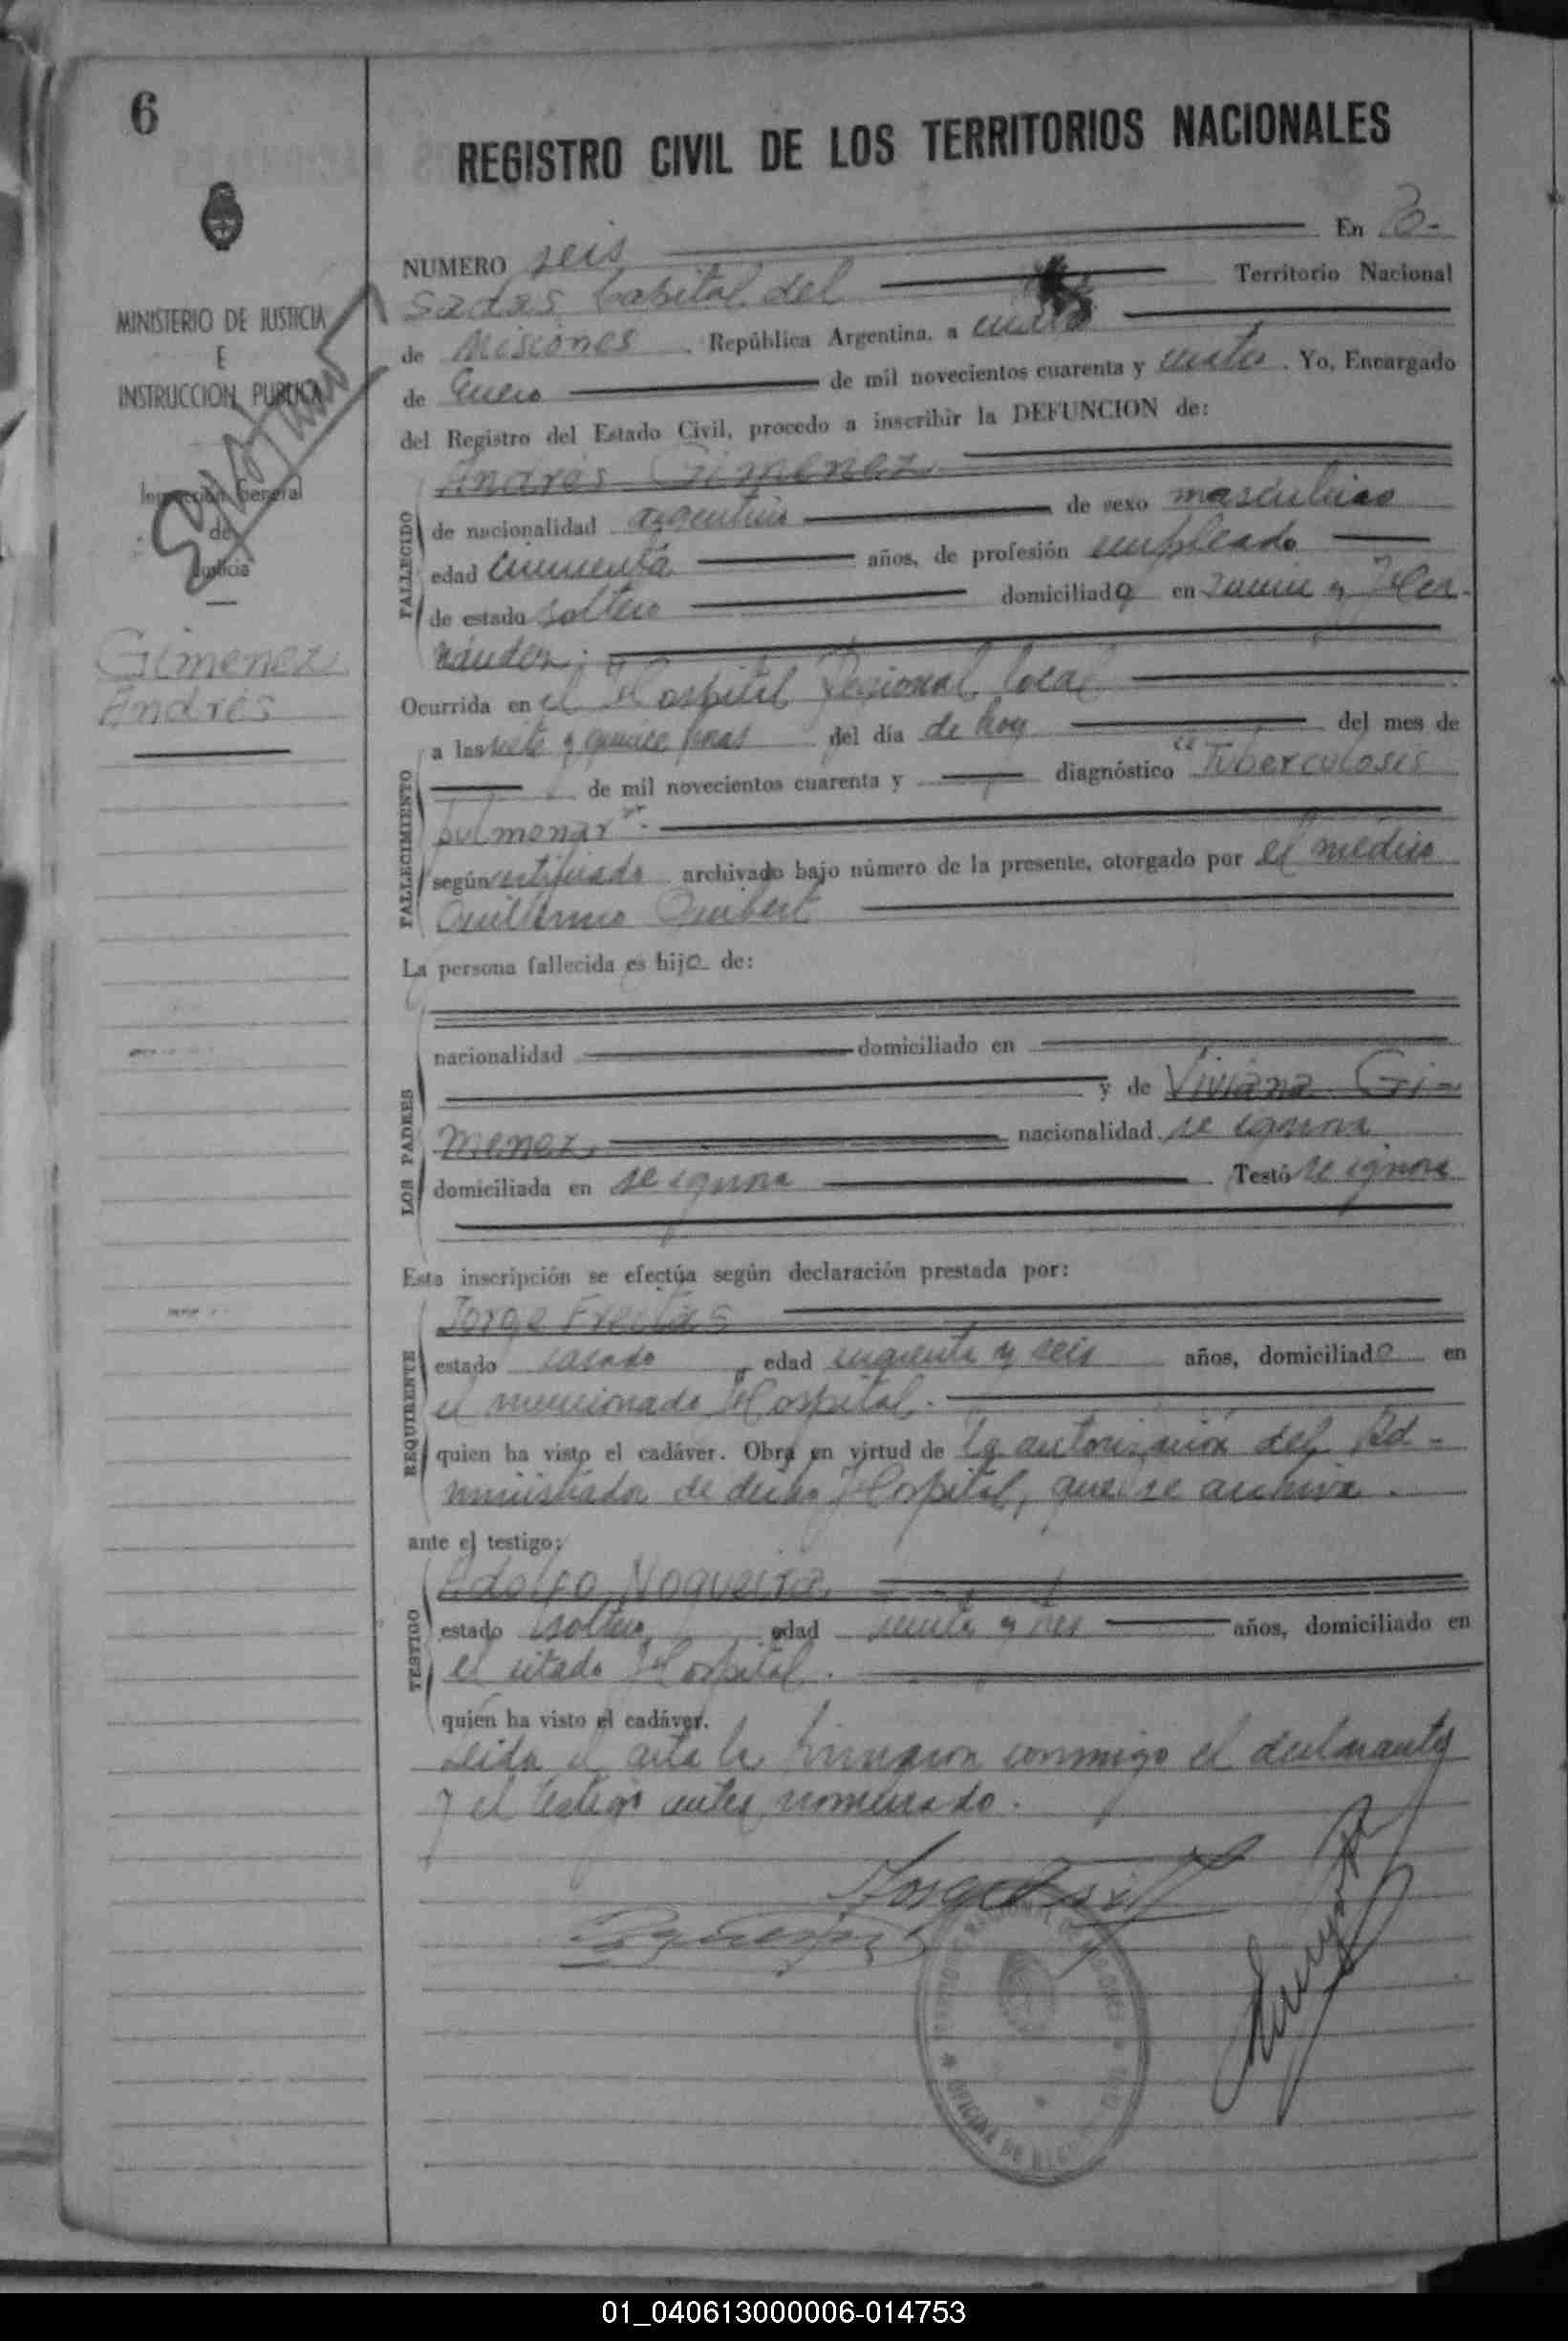 6
REGISTRO CIVIL DE LOS TERRITORIOS NACIONALES
MINISTERIO DE JUSTICIA
E
INSTRUCCION PUBLICA
Inspección General
de
Justicia
Gimenez
Andrés
NUMERO seis En Po-
sadas Capital del Territorio Nacional
de Misiones República Argentina, a
de Enero de mil novecientos cuarenta y cuatro. Yo, Encargado
del Registro del Estado Civil, procedo a inscribir la DEFUNCION de:
FALLECIDO
Andrés Gimenez
de nacionalidad argentino de sexo masculino
edad cincuenta años, de profesión empleado
de estado soltero domiciliado en Junin y Her-
nández.
Ocurrida en el Hospital Regional local
FALLECIMIENTO
a las siete y quince horas del día de hoy del mes de
de mil novecientos cuarenta y diagnóstico "Tuberculosis
pulmonar".
según certificado archivado bajo número de la presente, otorgado por el médico
Guillermo
La persona fallecida es hijo de:
LOS PADRES
nacionalidad domiciliado en
y de Viviana Gi-
menez, nacionalidad se ignora
domiciliada en se ignora Testó se ignora
Esta inscripción se efectúa según declaración prestada por:
REQUIRENTE
Jorge Freitas
estado casado, edad cincuenta y seis años, domiciliado en
el mencionado Hospital.
quien ha visto el cadáver. Obra en virtud de la autorización del Ad-
ministrador de dicho Hospital, que se archiva.
ante el testigo:
TESTIGO
Adolfo Nogueira,
estado soltero edad treinta y tres años, domiciliado en
el citado Hospital.
quien ha visto el cadáver.
Leida el acta la firmaron conmigo el declarante
y el testigo antes nombrado.
01_040613000006-014753